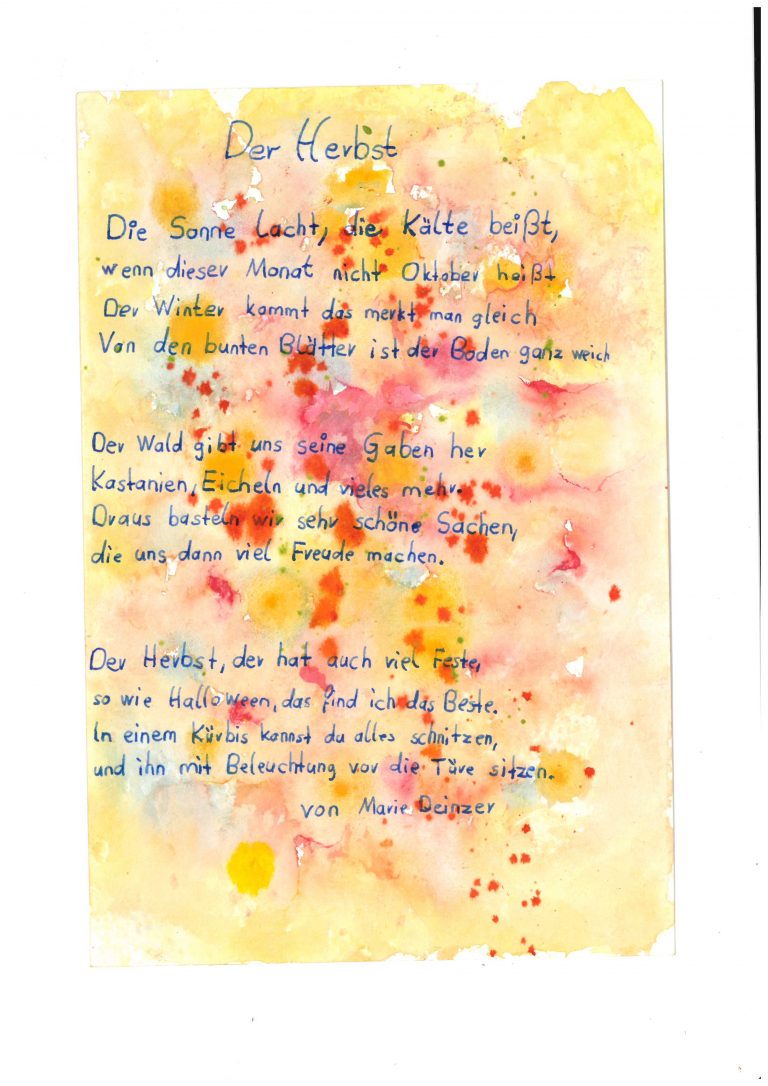 Der Herbst
Die Sonne lacht, die Kälte beißt,
wenn dieser Monat nicht Oktober heißt
Der Winter kommt das merkt man gleich
Von den bunten Blätter ist der Boden ganz weich
Der Wald gibt uns seine Gaben her
Kastanien, Eicheln und vieles mehr.
Draus basteln wir sehr schöne Sachen,
die uns dann viel Freude machen.
Der Herbst, der hat auch viel Feste,
so wie Halloween, das find ich das Beste.
In einem Kürbis kannst du alles schnitzen,
und ihn mit Beleuchtung vor die Türe sitzen.
von Marie Deinzer